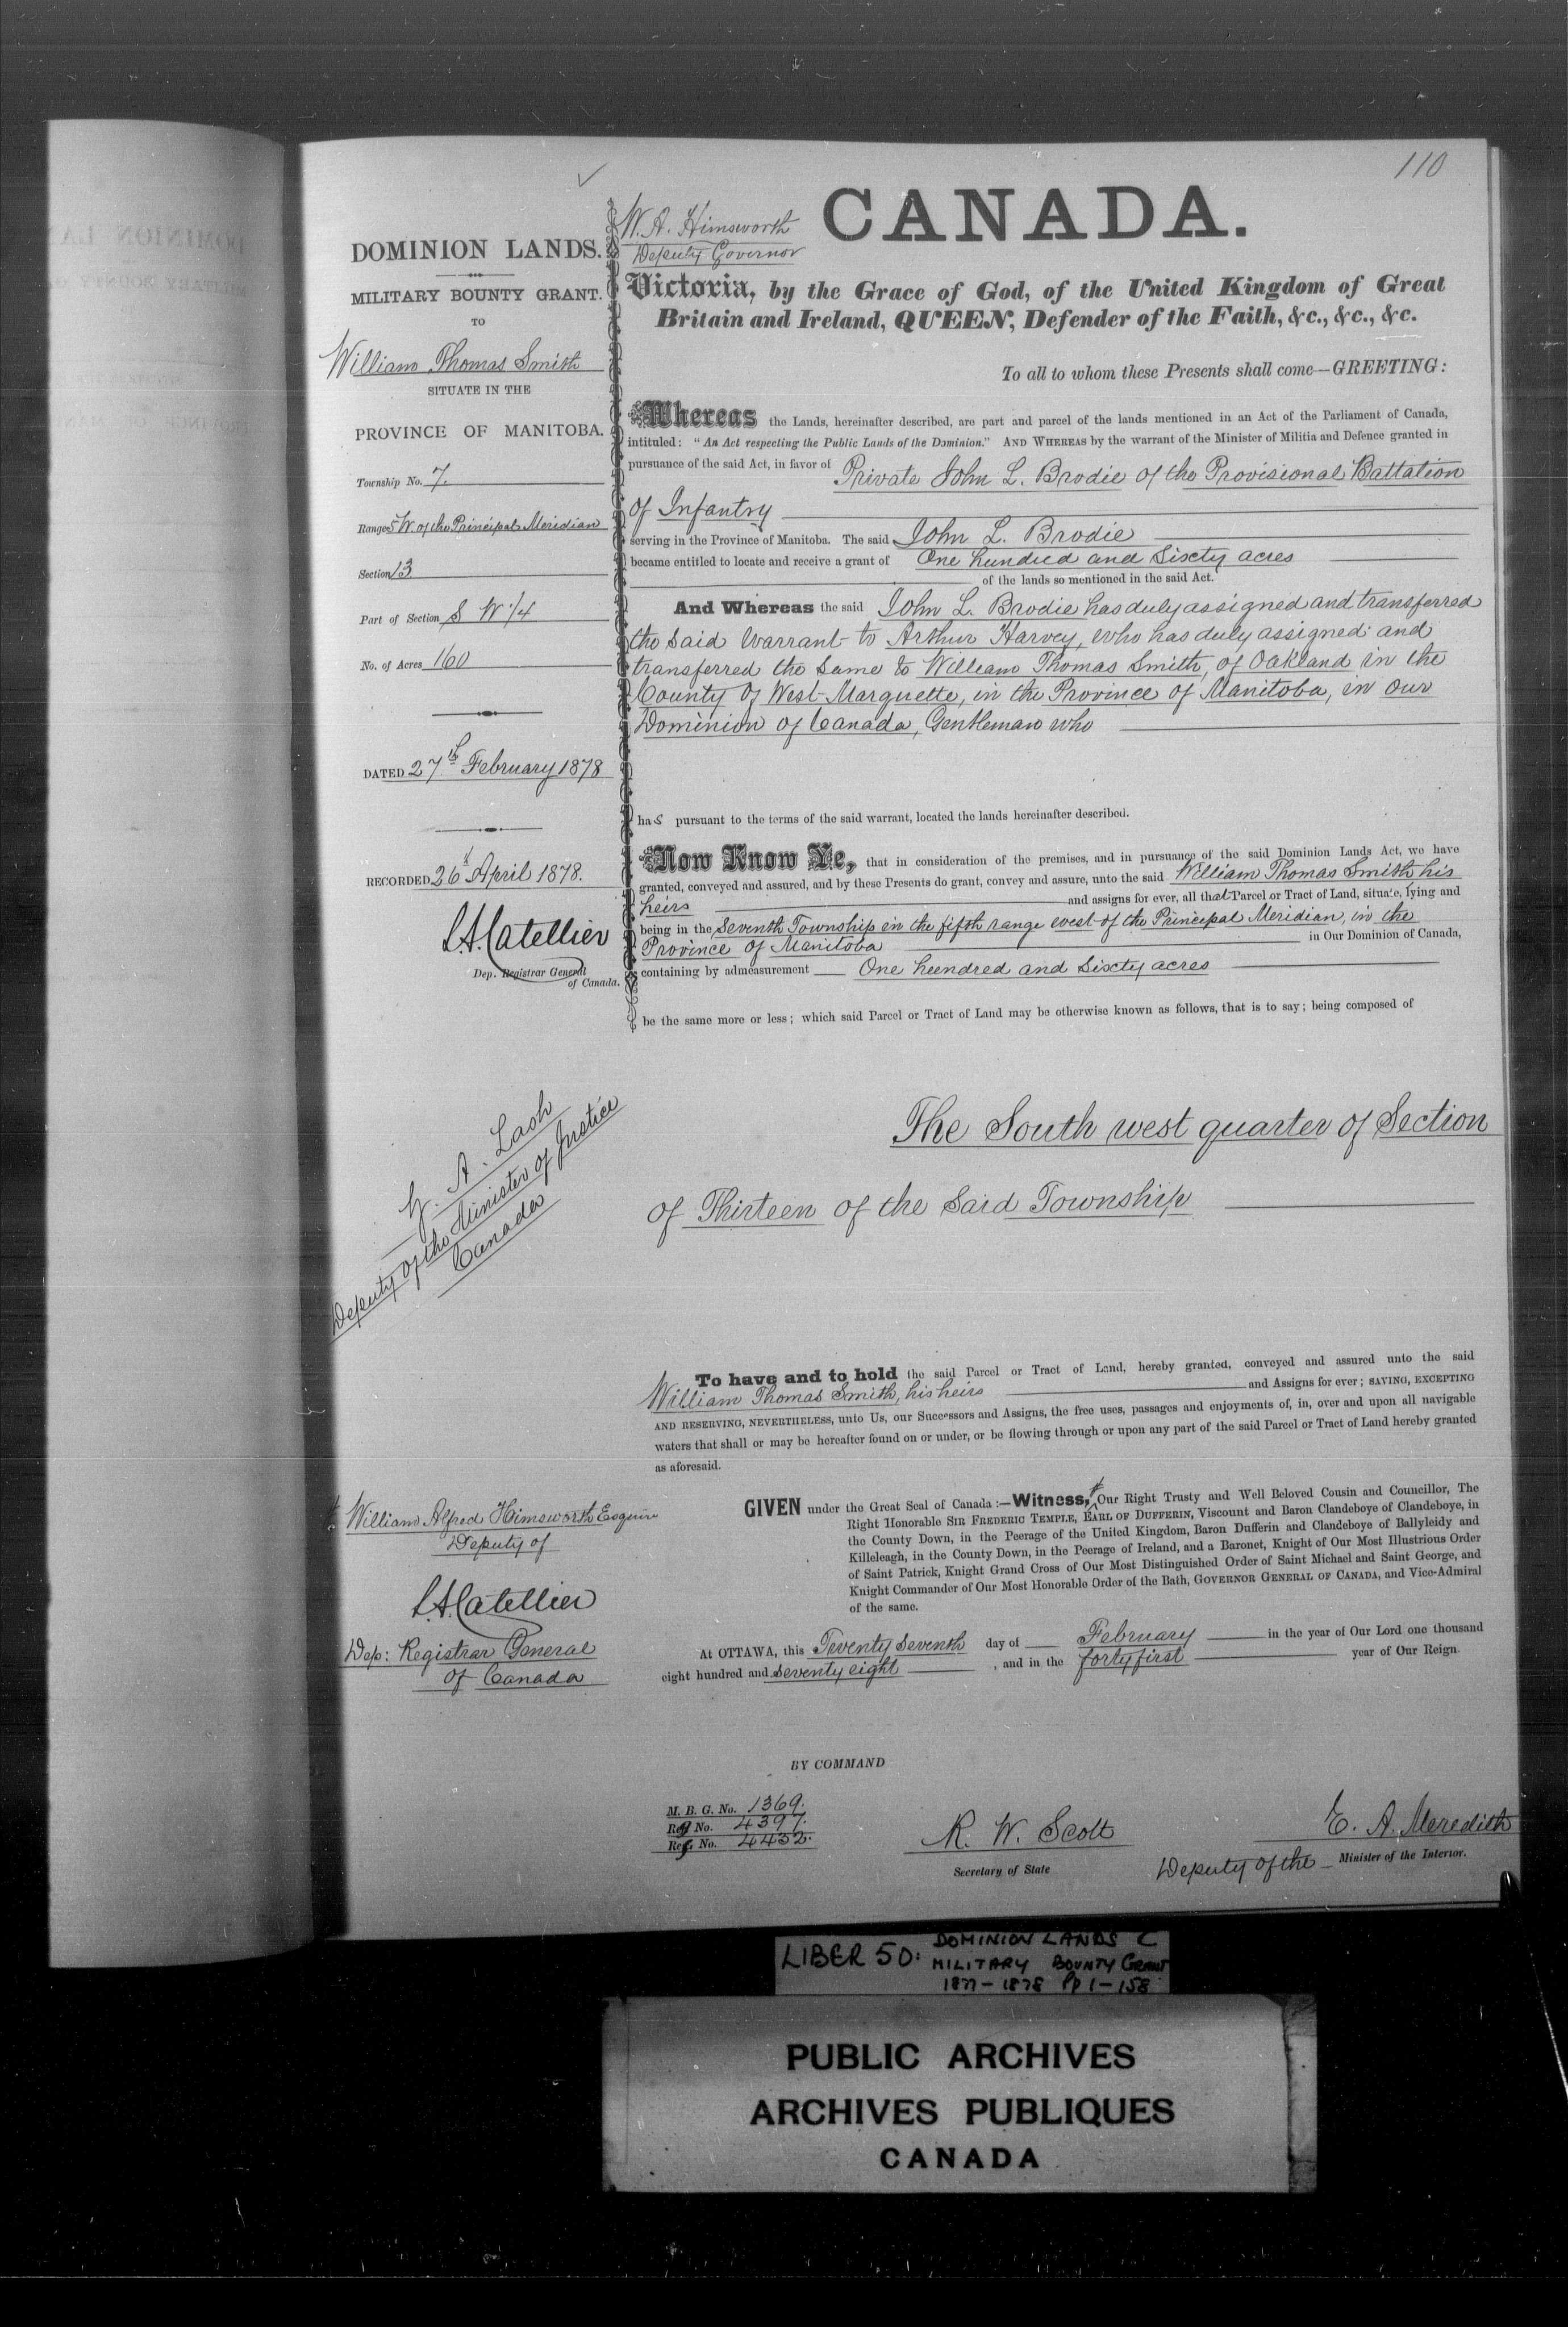 110
CANADA.
W. A. Himsworth
Deputy Governor
DOMINION LANDS.
MILITARY BOUNTY GRANT.
TO
William Thomas Smith
SITUATE IN THE
PROVINCE OF MANITOBA.
Township No. 7.
Range 5 W. of the Principal Meridian
Section 13
Part of Section S W 1/4
No. of Acres 160
DATED 27th February 1878
RECORDED 26th April 1878.
L.H. Catellier
Dep. Registrar General
of Canada.
Z. A. Lash
Deputy of the Minister of Justice
Canada
Victoria, by the Grace of God, of the United Kingdom of Great
Britain and Ireland, QUEEN, Defender of the Faith, &c., &c., &c.
To all to whom these Presents shall come—GREETING:
Whereas the Lands, hereinafter described, are part and parcel of the lands mentioned in an Act of the Parliament of Canada,
intituled: "An Act respecting the Public Lands of the Dominion." AND WHEREAS by the warrant of the Minister of Militia and Defence granted in
pursuance of the said Act, in favor of Private John L. Brodie of the Provisional Battation
of Infantry
serving in the Province of Manitoba. The said John L. Brodie
became entitled to locate and receive a grant of One hundred and Sixty acres
of the lands so mentioned in the said Act.
And Whereas the said John L. Brodie has duly assigned and transferred
the said Warrant to Arthur Harvey, who has duly assigned and
transferred the same to William Thomas Smith, of Oakland in the
County of West Marquette, in the Province of Manitoba, in our
Dominion of Canada, Gentleman who
has pursuant to the terms of the said warrant, located the lands hereinafter described.
Now Know Ye, that in consideration of the premises, and in pursuance of the said Dominion Lands Act, we have
granted, conveyed and assured, and by these Presents do grant, convey and assure, unto the said William Thomas Smith his
heirs and assigns for ever, all that Parcel or Tract of Land, situate, lying and
being in the Seventh Township in the fifth range west of the Principal Meridian, in the
Province of Manitoba in Our Dominion of Canada,
containing by admeasurement One hundred and Sixty acres
be the same more or less; which said Parcel or Tract of Land may be otherwise known as follows, that is to say; being composed of
The South west quarter of Section
of Thirteen of the Said Township
To have and to hold the said Parcel or Tract of Land, hereby granted, conveyed and assured unto the said
William Thomas Smith, his heirs and Assigns for ever; SAVING, EXCEPTING
AND RESERVING, NEVERTHELESS, unto Us, our Successors and Assigns, the free uses, passages and enjoyments of, in, over and upon all navigable
waters that shall or may be hereafter found on or under, or be flowing through or upon any part of the said Parcel or Tract of Land hereby granted
as aforesaid.
William Alfred Himsworth Esquire
Deputy of
L.H. Catellier
Dep: Registrar General
of Canada
GIVEN under the Great Seal of Canada:—Witness, Our Right Trusty and Well Beloved Cousin and Councillor, The
Right Honorable SIR FREDERIC TEMPLE, EARL OF DUFFERIN, Viscount and Baron Clandeboye of Clandeboye, in
the County Down, in the Peerage of the United Kingdom, Baron Dufferin and Clandeboye of Ballyleidy and
Killeleagh, in the County Down, in the Peerage of Ireland, and a Baronet, Knight of Our Most Illustrious Order
of Saint Patrick, Knight Grand Cross of Our Most Distinguished Order of Saint Michael and Saint George, and
Knight Commander of Our Most Honorable Order of the Bath, GOVERNOR GENERAL OF CANADA, and Vice-Admiral
of the same.
At OTTAWA, this Twenty Seventh day of February in the year of Our Lord one thousand
eight hundred and seventy eight, and in the forty first year of Our Reign.
BY COMMAND
M. B. G. No. 1369.
Reg No. 4397.
Ref. No. 4432.
R. W. Scott
Secretary of State
E. A. Meredith
Deputy of the Minister of the Interior.
LIBER 50: DOMINION LANDS C
MILITARY BOUNTY GRANT
1877-1878 Pp 1-158
PUBLIC ARCHIVES
ARCHIVES PUBLIQUES
CANADA